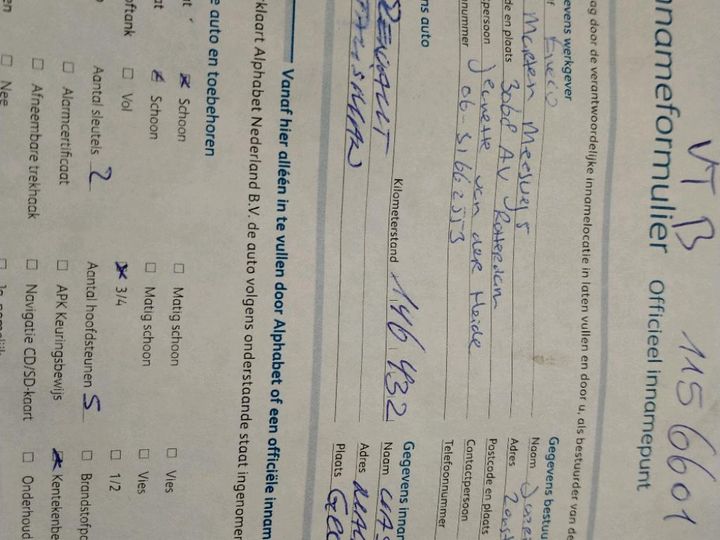 VTB 1156601
nnameformulier Officieel innamepunt
ag door de verantwoordelijke innamelocatie in laten vullen en door u, als bestuurder van de
gevens werkgever
Gegevens bestuu
Naam
Adres
de en plaats 3068 AV Rotterdam
Postcode en plaats
persoon Jeanette van der Heide
Contactpersoon
nnummer 06-51662553
Telefoonnummer
ns auto
Gegevens innan
RENAULT
Kilometerstand 146 432
Naam
TALISMAN
Adres
Plaats
Vanaf hier alléén in te vullen door Alphabet of een officiële innam
klaart Alphabet Nederland B.V. de auto volgens onderstaande staat ingenomer
e auto en toebehoren
Schoon Matig schoon Vies
at Schoon Matig schoon Vies
oftank Vol 3/4 1/2
Aantal sleutels 2 Aantal hoofdsteunen 5 Brandstofpa
Alarmcertificaat APK Keuringsbewijs Kentekenbe
Afneembare trekhaak Navigatie CD/SD-kaart Onderhoud
Nee